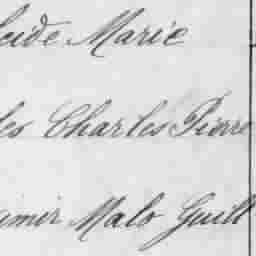 eide Marie
les Charles Pierre
imir Malo Guill